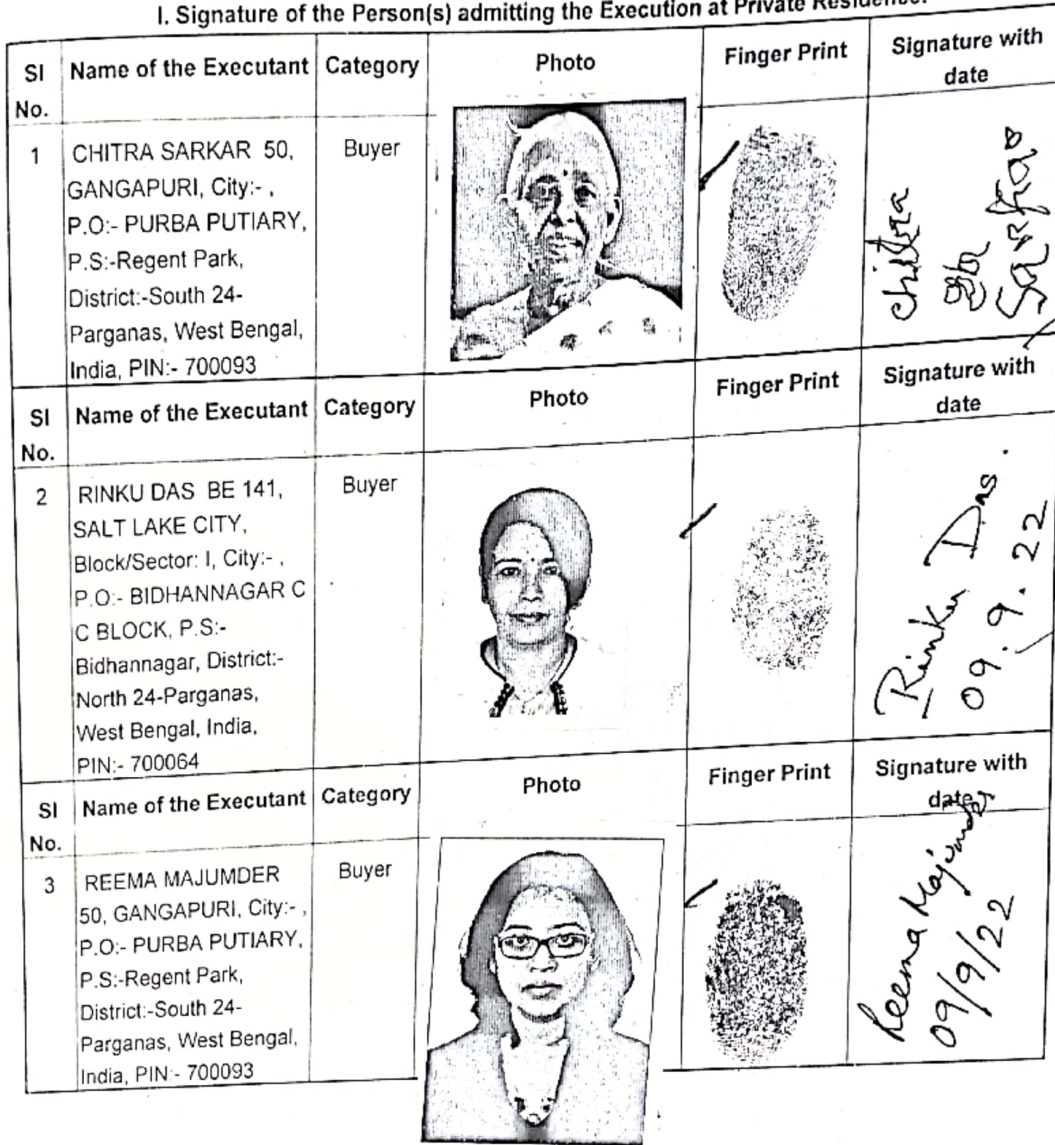 I. Signature of the Person(s) admitting the Execution at Private Residence.
Sl No.
Name of the Executant
Category
Photo
Finger Print
Signature with date
1
CHITRA SARKAR 50,
GANGAPURI, City:- ,
P.O:- PURBA PUTIARY,
P.S:-Regent Park,
District:-South 24-
Parganas, West Bengal,
India, PIN:- 700093
Buyer
Chitra
Sarkar
Sl No.
Name of the Executant
Category
Photo
Finger Print
Signature with date
2
RINKU DAS BE 141,
SALT LAKE CITY,
Block/Sector: I, City:- ,
P.O:- BIDHANNAGAR C
C BLOCK, P.S:-
Bidhannagar, District:-
North 24-Parganas,
West Bengal, India,
PIN:- 700064
Buyer
Rinku Das.
09.9.22
Sl No.
Name of the Executant
Category
Photo
Finger Print
Signature with date
3
REEMA MAJUMDER
50, GANGAPURI, City:- ,
P.O:- PURBA PUTIARY,
P.S:-Regent Park,
District:-South 24-
Parganas, West Bengal,
India, PIN:- 700093
Buyer
Reema Majumder
09/9/22